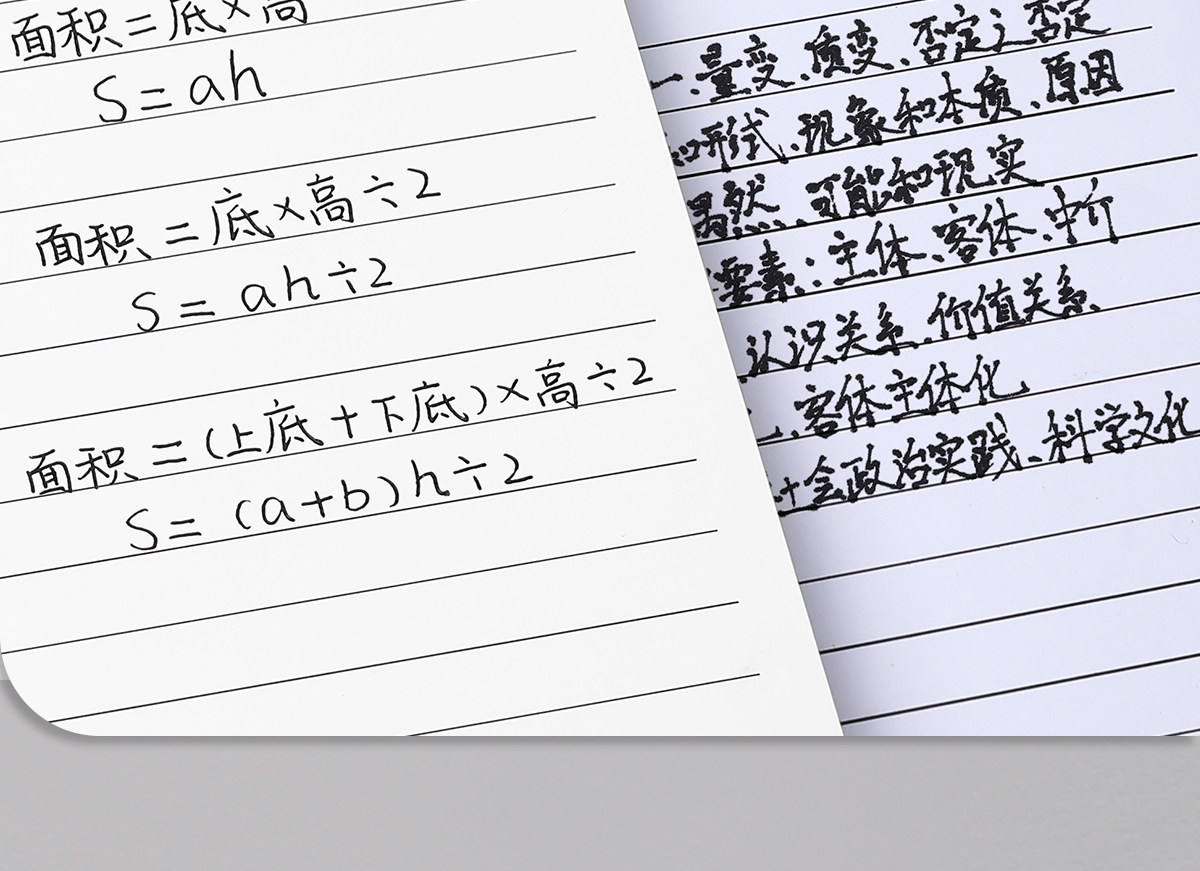 面积=底×高
S=ah
面积=底×高÷2
S=ah÷2
面积=(上底+下底)×高÷2
S=(a+b)h÷2
一、量变、质变、否定之否定
和形式、现象和本质、原因
偶然、可能和现实
要素:主体、客体、中介
认识关系、价值关系
、客体主体化
会政治实践、科学文化